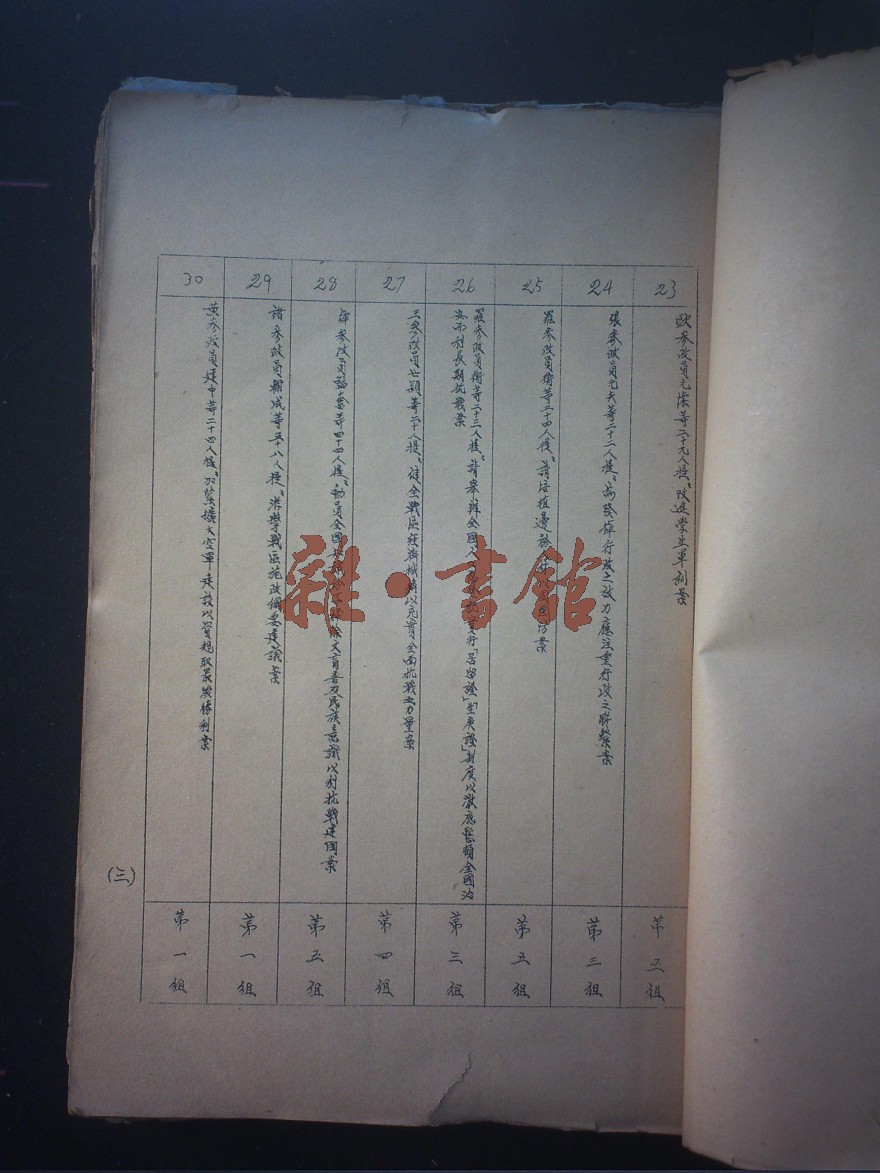 23
歐參政員元懷等二十九人提：改進學生軍訓案
第五組
24
張參政員元夫等二十二人提：為發揮行政之效力應注重行政之聯繫案
第三組
25
羅參政員衡等二十四人提：請培植邊務
案
第五組
26
羅參政員衡等二十三人提：請舉辦全國人口
實行「居留證」「生庚證」制度以澈底整頓全國治
安而利長期抗戰案
第三組
27
王參政員七穎等二十人提：健全戰區經濟機構以充實全面抗戰之力量案
第四組
28
參政員 等四十四人提：動員全國
除文盲普及民族意識以利抗戰建國案
第五組
29
諸參政員輔成等五十八人提：淞滬戰區施政綱要建議案
第一組
30
黃參政員建中等二十四人提：加緊擴大空軍建設以資規取最後勝利案
第一組
(三)
雜·書館